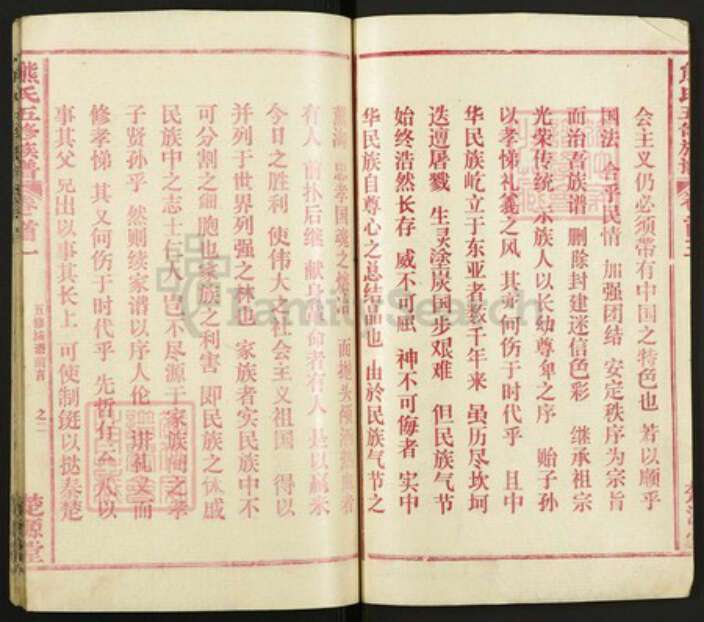 会主义仍必须带有中国之特色也 若以顺乎
国法 合乎民情 加强团结 安定秩序为宗旨
而治吾族谱 删除封建迷信色彩 继承祖宗
光荣传统 族人以长幼尊卑之序 贻子孙
以孝悌礼义之风 其又何伤于时代乎 且中
华民族屹立于东亚者数千年来 虽历尽坎坷
迭遭屠戮 生灵塗炭国步艰难 但民族气节
始终浩然长存 威不可屈 神不可侮者 实中
华民族自尊心之总结晶也 由於民族气节之
忠孝国魂之 而抛头 者
有人 前扑后继 献身 命者有人 是以赢来
今日之胜利 使伟大之社会主义祖国 得以
并列于世界列强之林也 家族者实民族中不
可分割之细胞也 家族之利害 即民族之休戚
民族中之志士仁人 岂不尽源于家族间之孝
子贤孙乎 然则续家谱以序人伦 讲礼义而
修孝悌 其又何伤于时代乎 先哲有云 入以
事其父兄出以事其长上 可使制挺以挞秦楚
五修族谱 之二
熊氏五修族谱 卷首一
楚源堂
熊氏五修族谱 卷首
FamilySearch